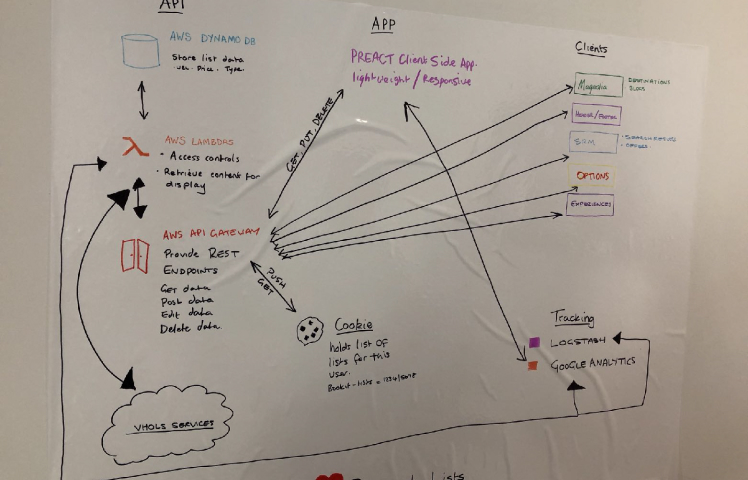 API
AWS DYNAMO DB
Store list data
Price. Type.
AWS LAMBDAS
· Access controls
· Retrieve content for
display
AWS API GATEWAY
Provide REST
ENDPOINTS
Get data
Post data
Edit data
Delete data.
VHOLS SERVICES
APP
PREACT Client Side App.
lightweight / Responsive
GET, PUT, DELETE
PUSH
GET
Cookie
holds list OF
lists for this
user.
Clients
Magnolia
· DESTINATIONS
· BLOGS
HEADER/FOOTER
SRM
OPTIONS
EXPERIENCES
Tracking
LOGSTASH
GOOGLE ANALYTICS
Lists